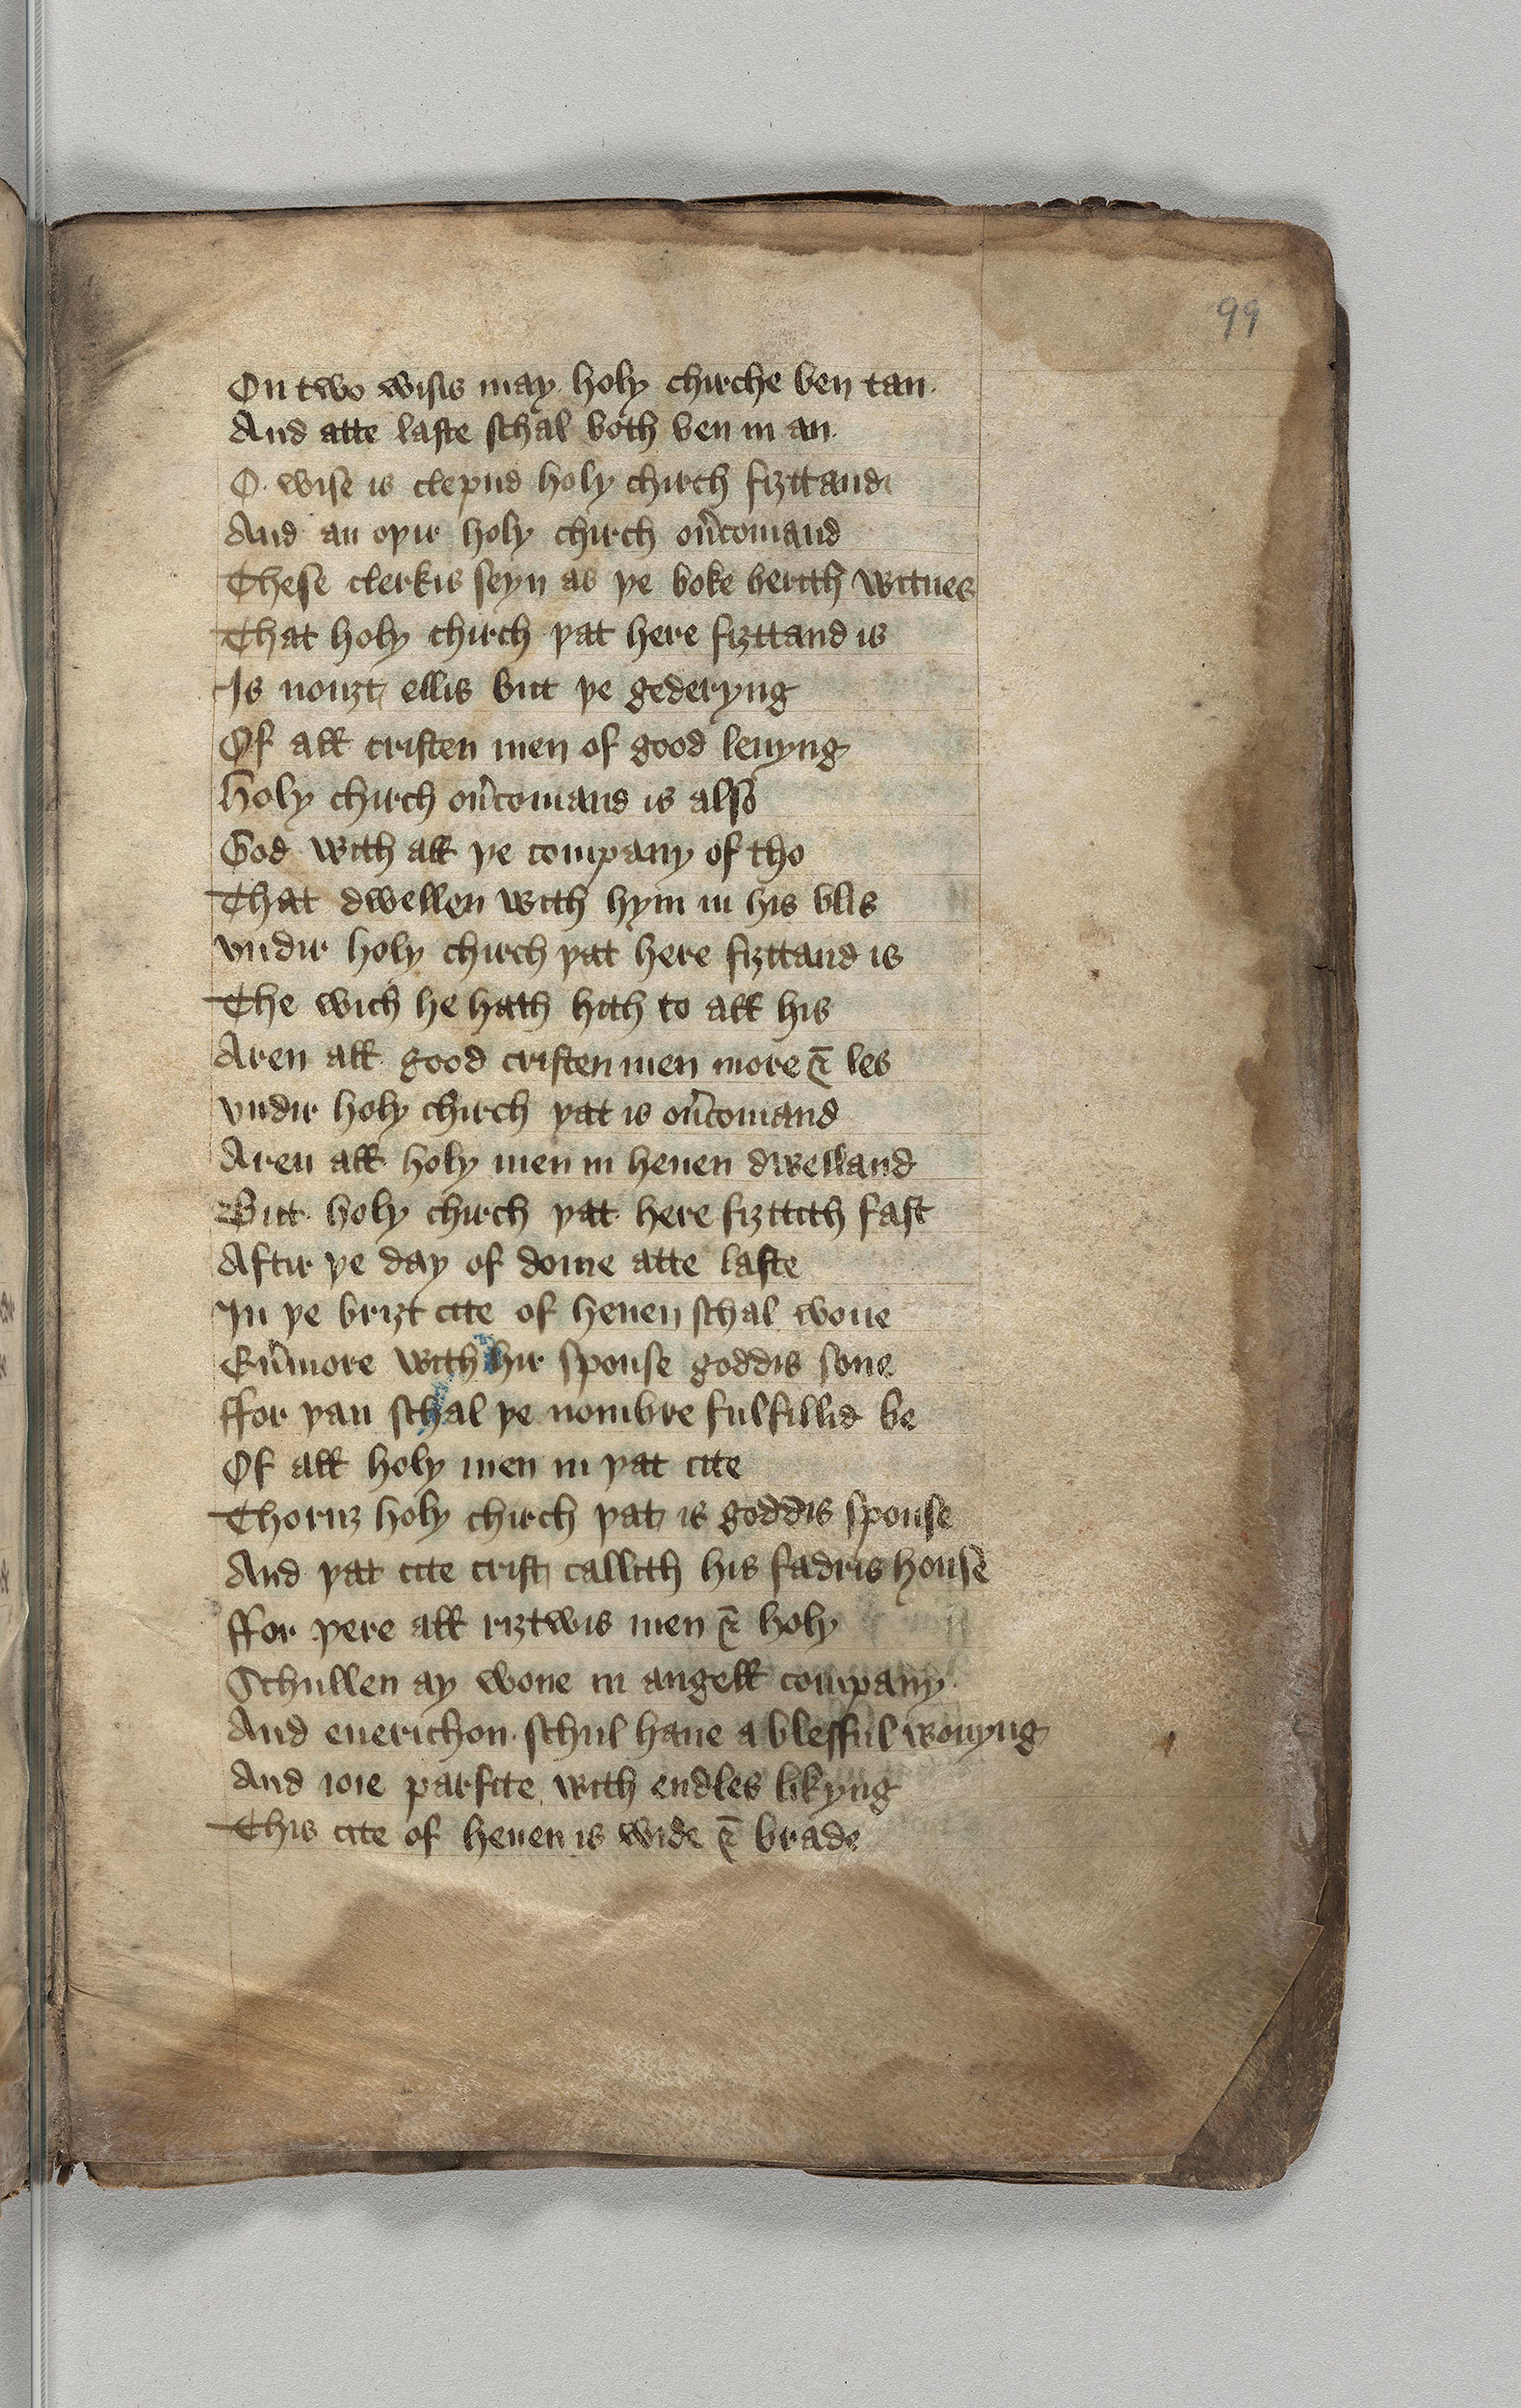 99
On two wisis may holy chirche ben tan.
And atte laste schal both ben in an.
O. wise is clepud holy chirch fiȝttand
And an oþir holy chirch ou̾comand
These clerkis seyn as þe boke berith witnes
That holy chirch þat here fiȝttand is
Is nouȝt ellis but þe gederyng
Of all cristen men of good leuyng
Holy chirch ou̾comand is also
God with all þe company of tho
That dwellen with hym in his blis
vndir holy chirch þat here fiȝttand is
The wich he hath hith to all his
Aren all good cristen men more & les
vndir holy chirch þat is ou̾comand
Aren all holy men in heuen dwelland
But holy chirch þat here fiȝttith fast
Aftir þe day of dome atte laste
In þe briȝt cite of heuen schal wone
Eu̾more with hir spouse goddis sone
ffor þan schal þe nombre fulfillid be
Of all holy men in þat cite
Thoruȝ holy chirch þat is goddis spouse
And þat cite crist callith his fadris house
ffor þere all riȝtwis men & holy
Schullen ay wone in angell company.
And euerichon. schul haue a blesful wonyng
And ioie parfite with endles likyng
This cite of heuen is wide & brade